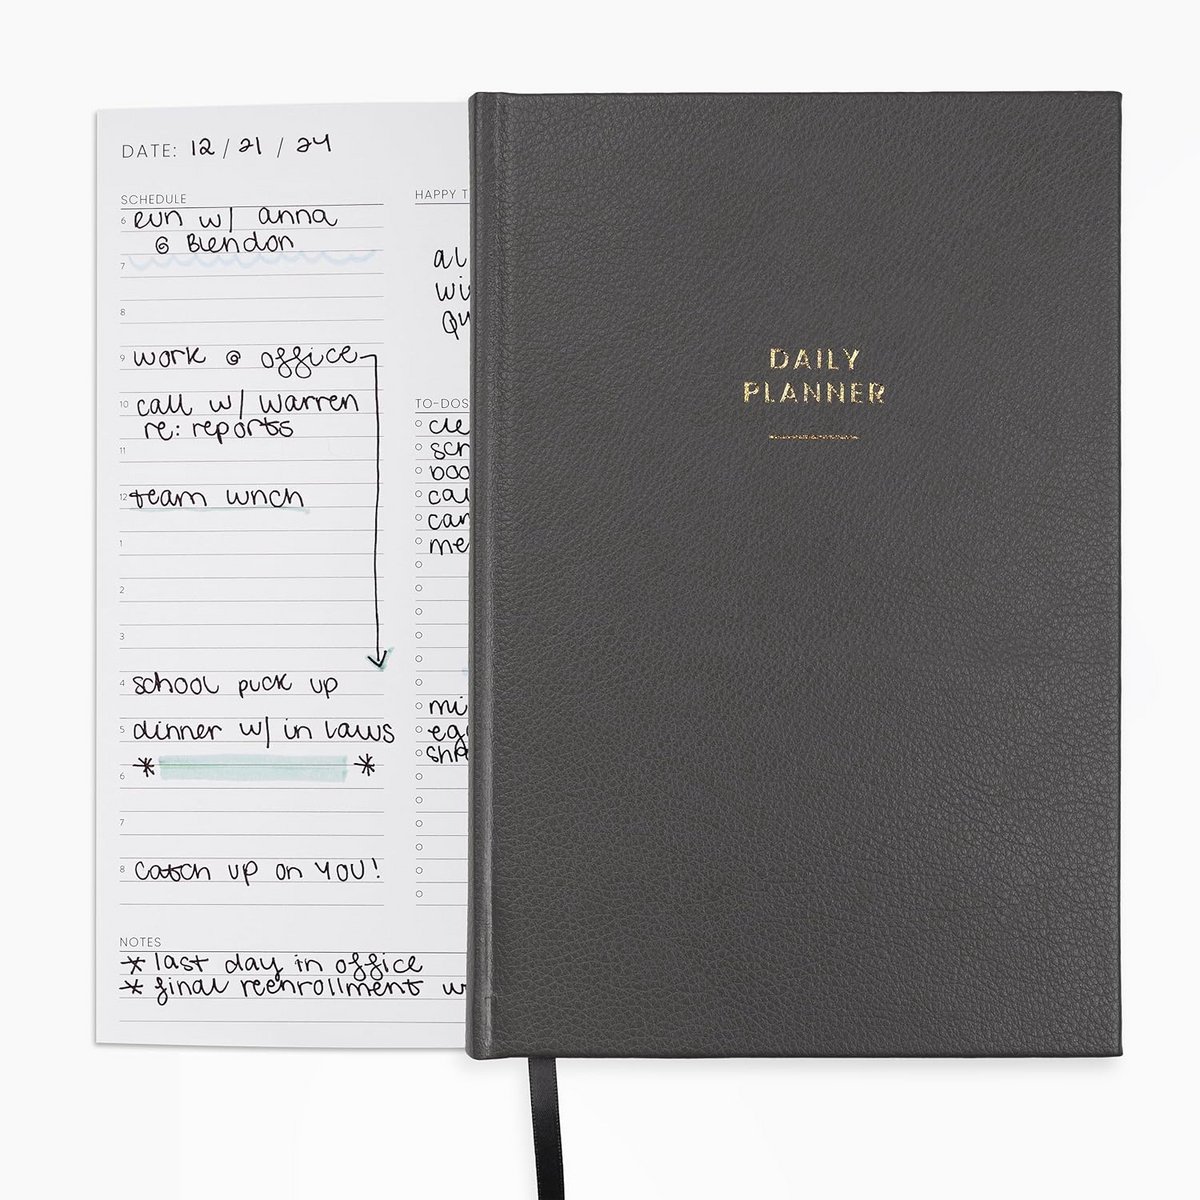 DATE: 12 / 21 / 24
SCHEDULE
6 run w/ anna
@ Blendon
7
8
9 work @ office
10 call w/ Warren
re: reports
11
12 team lunch
1
2
3
4 school pick up
5 dinner w/ in laws
* *
6
7
8 catch up on YOU!
NOTES
* last day in office
* final reenrollment
HAPPY T
al
wi
qu
TO-DOS
cle
sch
boo
cal
can
me
mi
egg
sh
DAILY
PLANNER